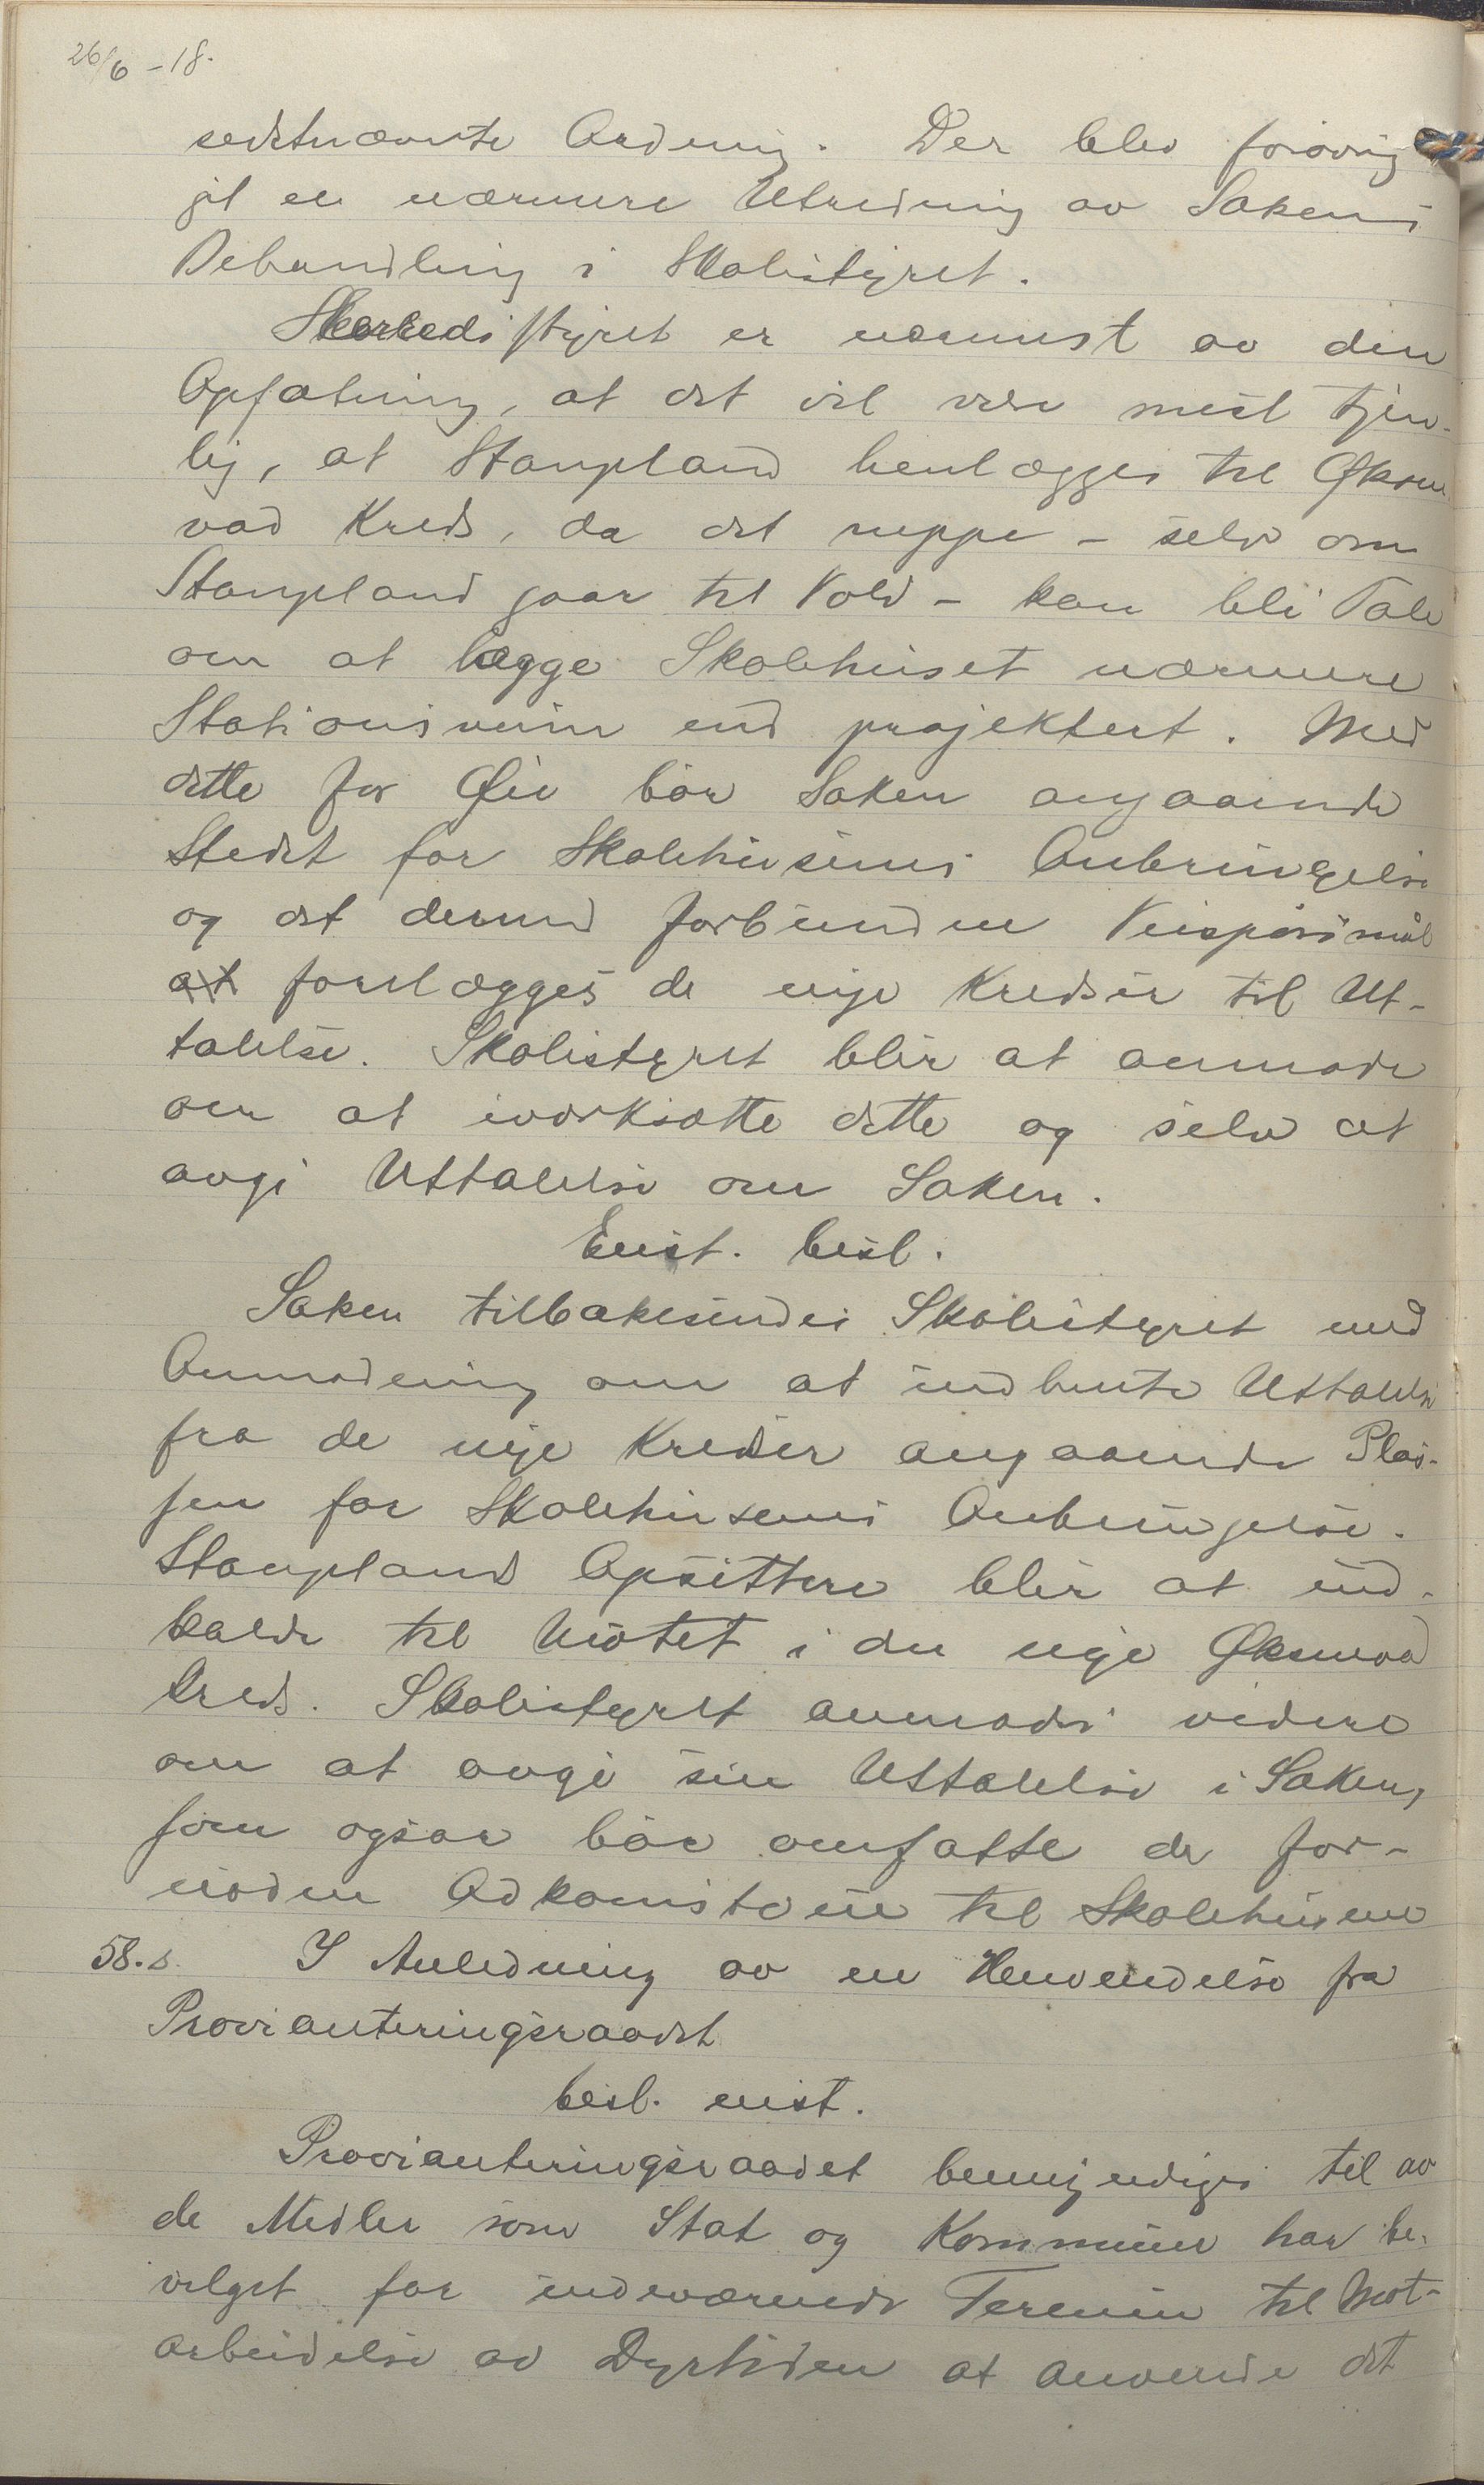 26/6 - 18.
sidstnævnte Ordning. Der blev forøvrig
git en nærmere Utredning av Sakens
Behandling i Skolestyret.
Herredsstyret er nærmest av den
Opfatning, at det vil være mest tjen-
lig, at Stangeland henlægges til Øksne
vad Kreds, da det neppe - selv om
Stangeland gaar til Vold - kan bli Tale
om at lægge Skolehuset nærmere
Stationsveien end projektert. Med
dette for Øie bør Saken angaaende
Stedet for Skolehusenes Anbringelse
og det dermed forbundne Veispørsmål
forelægges de nye Kredser til Ut-
talelse. Skolestyret blir at anmode
om at iverksætte dette og selv at
avgi Uttalelse om Saken.
Enst. besl.
Saken tilbakesendes Skolestyret med
Anmodning om at indhente Uttalelse
fra de nye Kredser angaaende Plas-
sen for Skolehusenes Anbringelse.
Stangelands Opsittere blir at ind-
kalde til Møtet i den nye Øksnevad
Kreds. Skolestyret anmodes videre
om at avgi sin Uttalelse i Saken,
som ogsaa bør omfatte de for-
nødne Adkomstveie til Skolehusene
58.s. I Anledning av en Henvendelse fra
Provianteringsraadet
besl. enst.
Provianteringsraadet bemyndiges til av
de Midler som Stat og Kommune har be-
vilget for indeværende Termin til Mot-
arbeidelse av Dyrtiden at anvende det